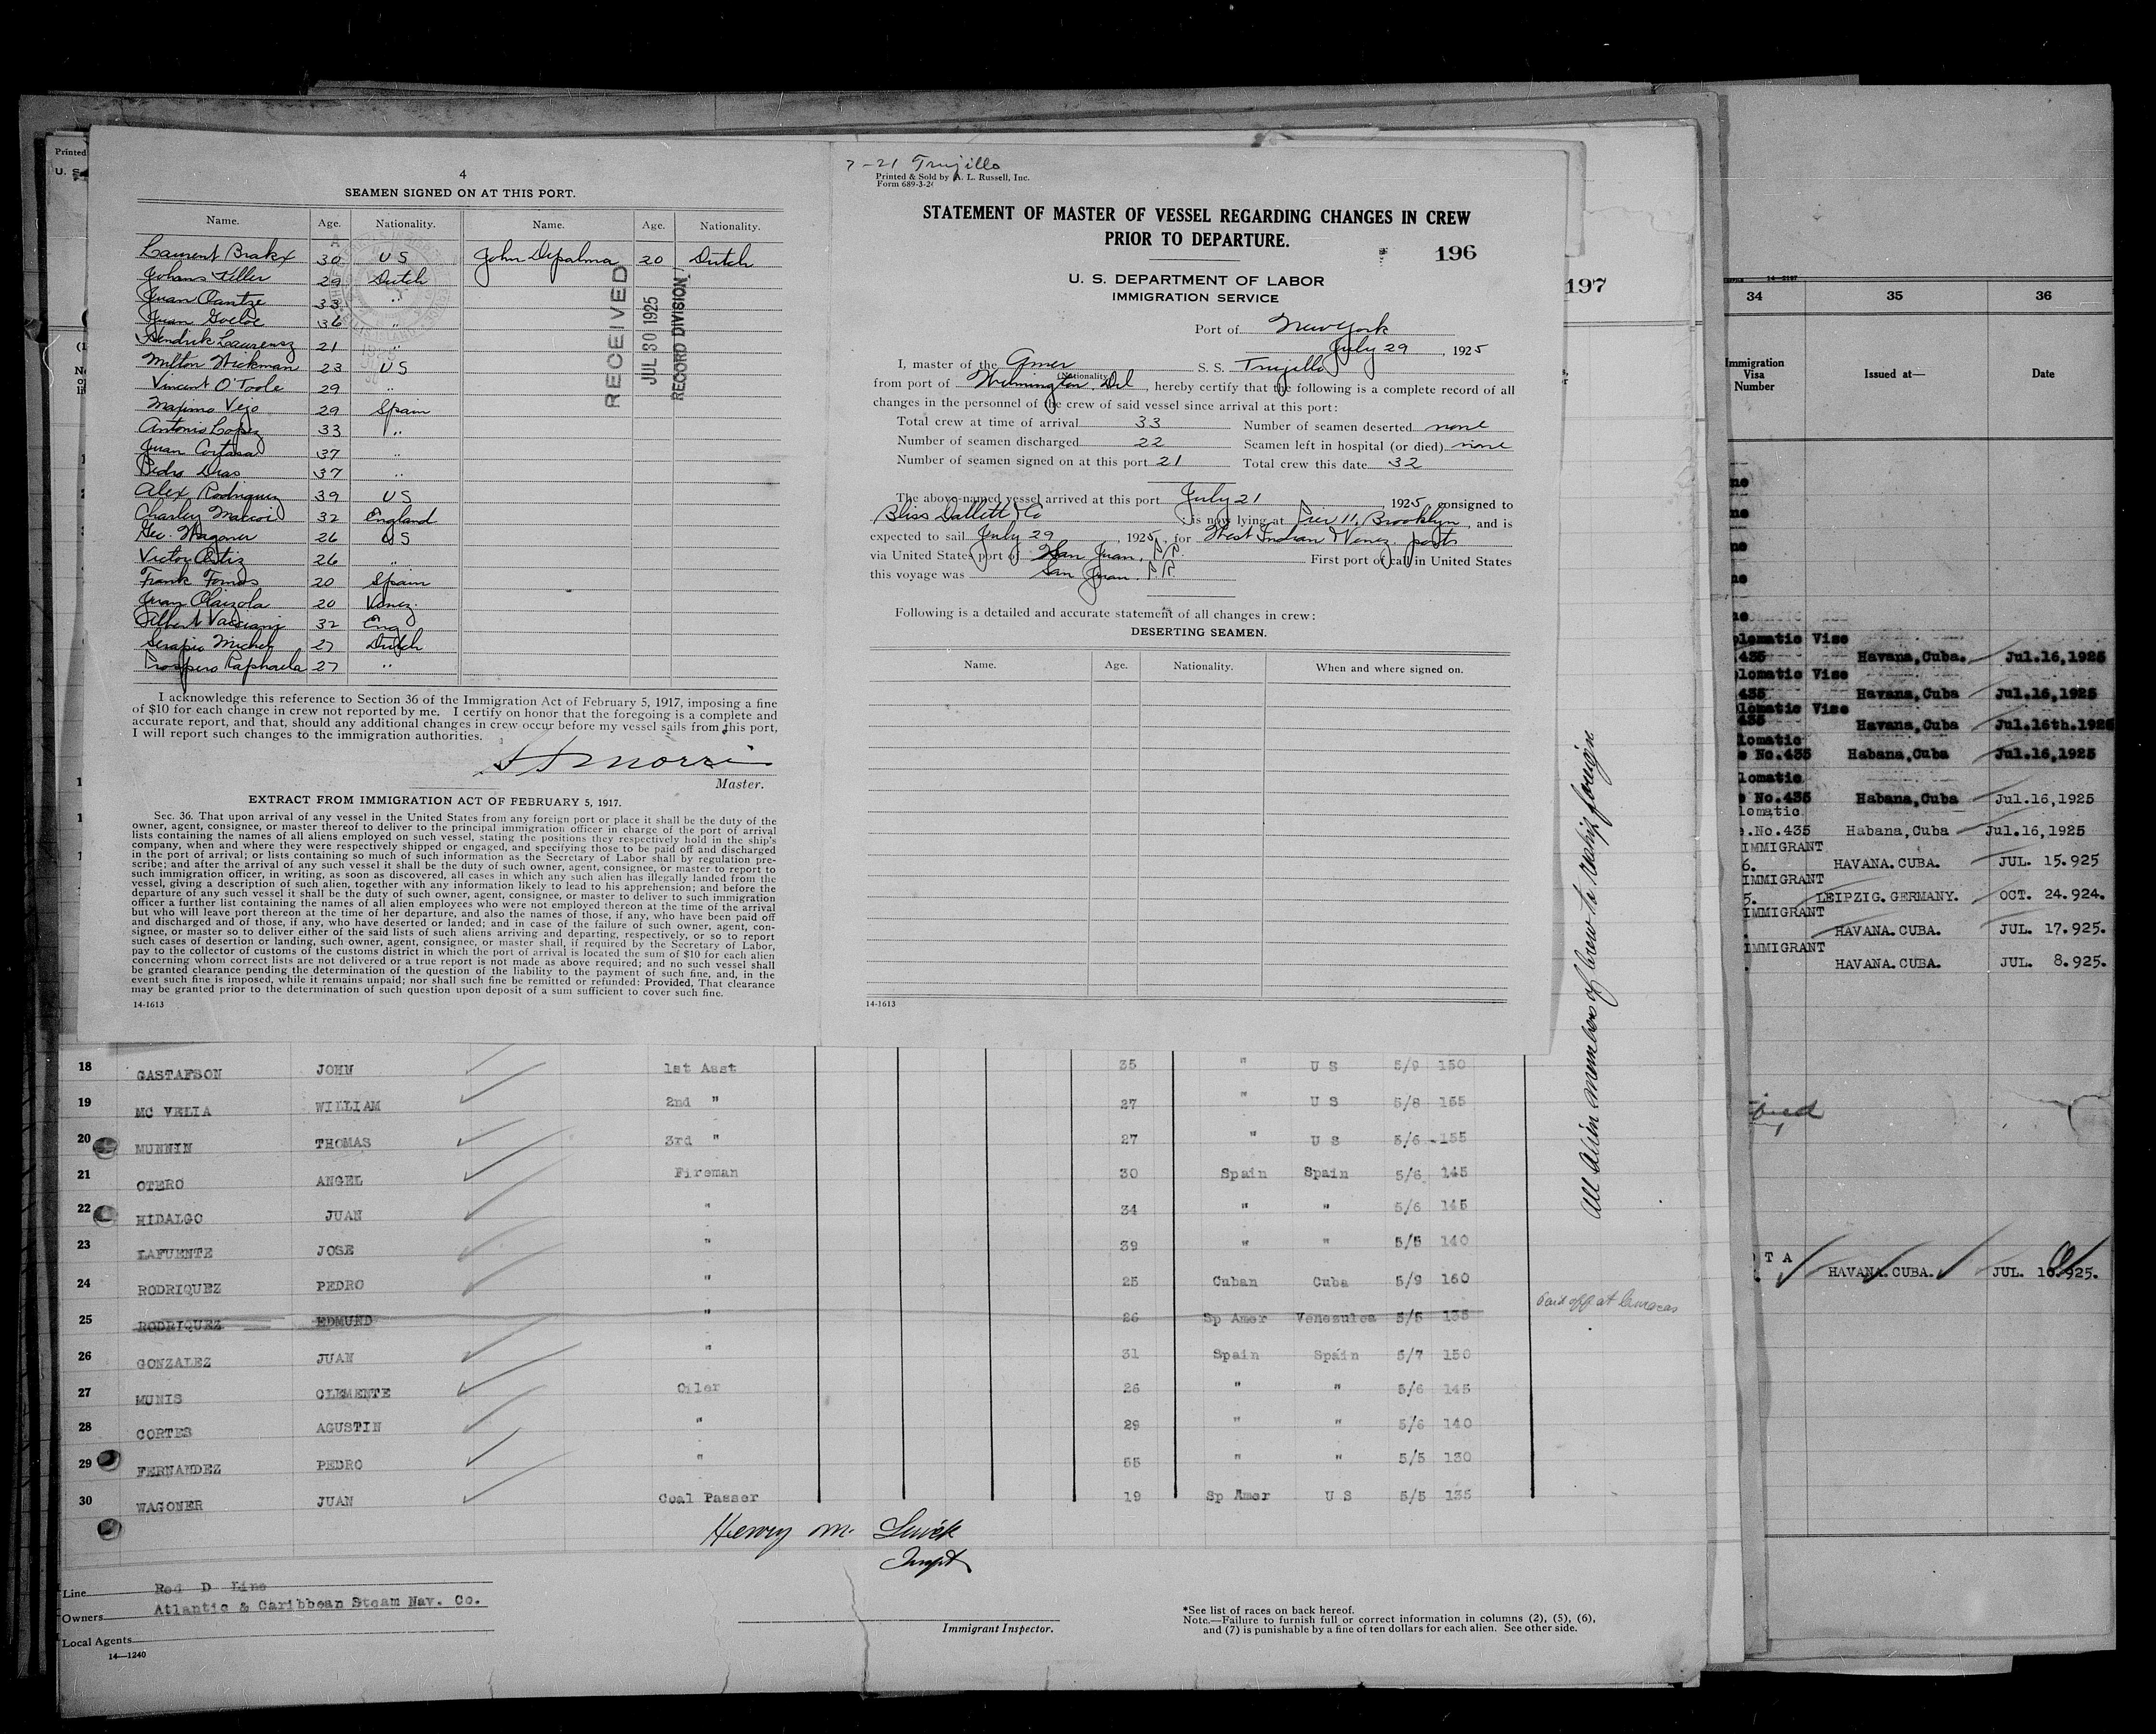 4
SEAMEN SIGNED ON AT THIS PORT.
Name. Age. Nationality. Name. Age. Nationality.
Laurent Brakx 30 US John Depalma 20 Dutch
Johans Filler 29 Dutch
Juan 33 "
Juan 36 "
Hendrik Laurensz 21 "
Milton Wickman 23 US
Vincent O'Toole 29 "
Maximo Vejo 29 Spain
Antonio Lopez 33 "
Juan Cortasa 37 "
Pedro Dias 37 "
Alex Rodriguez 39 US
Charley 32 England
Geo. Wagoner 26 US
Victor Ortiz 26 "
Frank Tomas 20 Spain
Juan Olaizola 20 Venez.
Albert 32 Eng
Serapio Michel 27 Dutch
Prospero Raphaela 27 "
RECEIVED
JUL 30 1925
RECORD DIVISION
I acknowledge this reference to Section 36 of the Immigration Act of February 5, 1917, imposing a fine
of $10 for each change in crew not reported by me. I certify on honor that the foregoing is a complete and
accurate report, and that, should any additional changes in crew occur before my vessel sails from this port,
I will report such changes to the immigration authorities.
Master.
EXTRACT FROM IMMIGRATION ACT OF FEBRUARY 5, 1917.
Sec. 36. That upon arrival of any vessel in the United States from any foreign port or place it shall be the duty of the
owner, agent, consignee, or master thereof to deliver to the principal immigration officer in charge of the port of arrival
lists containing the names of all aliens employed on such vessel, stating the positions they respectively hold in the ship's
company, when and where they were respectively shipped or engaged, and specifying those to be paid off and discharged
in the port of arrival; or lists containing so much of such information as the Secretary of Labor shall by regulation pre-
scribe; and after the arrival of any such vessel it shall be the duty of such owner, agent, consignee, or master to report to
such immigration officer, in writing, as soon as discovered, all cases in which any such alien has illegally landed from the
vessel, giving a description of such alien, together with any information likely to lead to his apprehension; and before the
departure of any such vessel it shall be the duty of such owner, agent, consignee, or master to deliver to such immigration
officer a further list containing the names of all alien employees who were not employed thereon at the time of the arrival
but who will leave port thereon at the time of her departure, and also the names of those, if any, who have been paid off
and discharged and of those, if any, who have deserted or landed; and in case of the failure of such owner, agent, con-
signee, or master so to deliver either of the said lists of such aliens arriving and departing, respectively, or so to report
such cases of desertion or landing, such owner, agent, consignee, or master shall, if required by the Secretary of Labor,
pay to the collector of customs of the customs district in which the port of arrival is located the sum of $10 for each alien
concerning whom correct lists are not delivered or a true report is not made as above required; and no such vessel shall
be granted clearance pending the determination of the question of the liability to the payment of such fine, and, in the
event such fine is imposed, while it remains unpaid; nor shall such fine be remitted or refunded: Provided, That clearance
may be granted prior to the determination of such question upon deposit of a sum sufficient to cover such fine.
14-1613
7-21 Trujillo
Printed & Sold by A. L. Russell, Inc.
Form 689-3-2
STATEMENT OF MASTER OF VESSEL REGARDING CHANGES IN CREW
PRIOR TO DEPARTURE.
196
U. S. DEPARTMENT OF LABOR
IMMIGRATION SERVICE
Port of New York
July 29, 1925
I, master of the Amer S. S. Trujillo
(Nationality)
from port of Wilmington, Del, hereby certify that the following is a complete record of all
changes in the personnel of the crew of said vessel since arrival at this port:
Total crew at time of arrival 33 Number of seamen deserted none
Number of seamen discharged 22 Seamen left in hospital (or died) none
Number of seamen signed on at this port 21 Total crew this date 32
The above-named vessel arrived at this port July 21, 1925, consigned to
Bliss Dallett & Co is now lying at Pier 11, Brooklyn, and is
expected to sail July 29, 1925, for West Indian & Venez. ports
via United States port of San Juan, P.R. First port of call in United States
this voyage was San Juan. P.R.
Following is a detailed and accurate statement of all changes in crew:
DESERTING SEAMEN.
Name. Age. Nationality. When and where signed on.
14-1613
197
All alien members of crew to reship foreign
18 GASTAFSON JOHN 1st Asst 35 " U S 5/9 150
19 MC VELIA WILLIAM 2nd " 27 " U S 5/8 155
20 MUNNIN THOMAS 3rd " 27 " U S 5/6 155
21 OTERO ANGEL Fireman 30 Spain Spain 5/6 145
22 HIDALGO JUAN " 34 " " 5/6 145
23 LAFUENTE JOSE " 39 " " 5/5 140
24 RODRIQUEZ PEDRO " 25 Cuban Cuba 5/9 160
25 RODRIQUEZ EDMUND " 26 Sp Amer Venezulea 5/5 135 Paid off at Curacao
26 GONZALEZ JUAN " 31 Spain Spain 5/7 150
27 MUNIS CLEMENTE Oiler 28 " " 5/6 145
28 CORTES AGUSTIN " 29 " " 5/6 140
29 FERNANDEZ PEDRO " 55 " " 5/5 130
30 WAGONER JUAN Coal Passer 19 Sp Amer U S 5/5 135
Henry M.
Inspt
Line Red D Line
Owners Atlantic & Caribbean Steam Nav. Co.
Local Agents
14—1240
Immigrant Inspector.
*See list of races on back hereof.
Note.—Failure to furnish full or correct information in columns (2), (5), (6),
and (7) is punishable by a fine of ten dollars for each alien. See other side.
Printed
U. S.
14-2197
34 35 36
Immigration
Visa
Number
Issued at—
Date
plomatic Vise
435 Havana,Cuba. Jul.16,1925
plomatic Vise
435 Havana,Cuba Jul.16,1925
plomatic Vise
435 Havana,Cuba Jul.16th.1925
lomatic
e No.435 Habana,Cuba Jul.16,1925
lomatic
e No.435 Habana,Cuba Jul.16,1925
lomatic
.No.435 Habana,Cuba Jul.16,1925
IMMIGRANT
6. HAVANA.CUBA. JUL. 15.925
IMMIGRANT
5. LEIPZIG.GERMANY. OCT. 24.924.
IMMIGRANT
HAVANA.CUBA. JUL. 17.925.
IMMIGRANT
HAVANA.CUBA. JUL. 8.925.
T A
HAVANA.CUBA. JUL. 10.925.